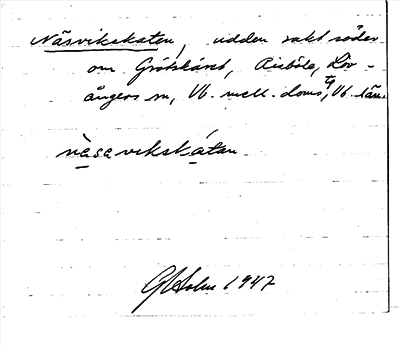 Näsvikskaten, udden rakt söder
om Grötskäret, Risböle, Löv-
ångers sn, Vb. mell. doms tg, Vb. län.
nasavikskatan
GHolm 1947